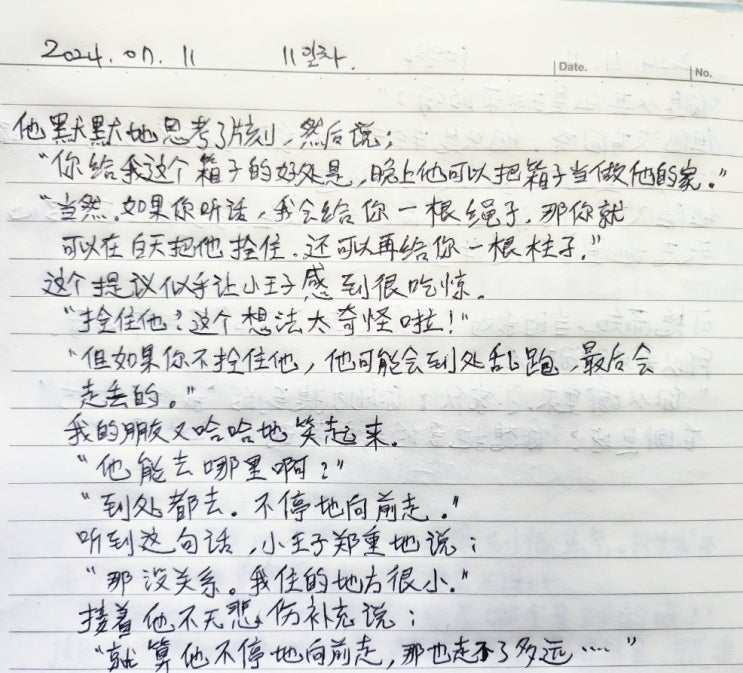 2024. 07. 11 11일차.
Date.
No.
他默默地思考了片刻，然后说：
“你给我这个箱子的好处是，晚上他可以把箱子当做他的家。”
“当然。如果你听话，我会给你一根绳子，那你就
可以在白天把他拴住。还可以再给你一根柱子。”
这个提议似乎让小王子感到很吃惊。
“拴住他？这个想法太奇怪啦！”
“但如果你不拴住他，他可能会到处乱跑，最后会
走丢的。”
我的朋友又哈哈地笑起来。
“他能去哪里啊？”
“到处都去。不停地向前走。”
听到这句话，小王子郑重地说：
“那没关系。我住的地方很小。”
接着他不无悲伤补充说：
“就算他不停地向前走，那也走不了多远……”